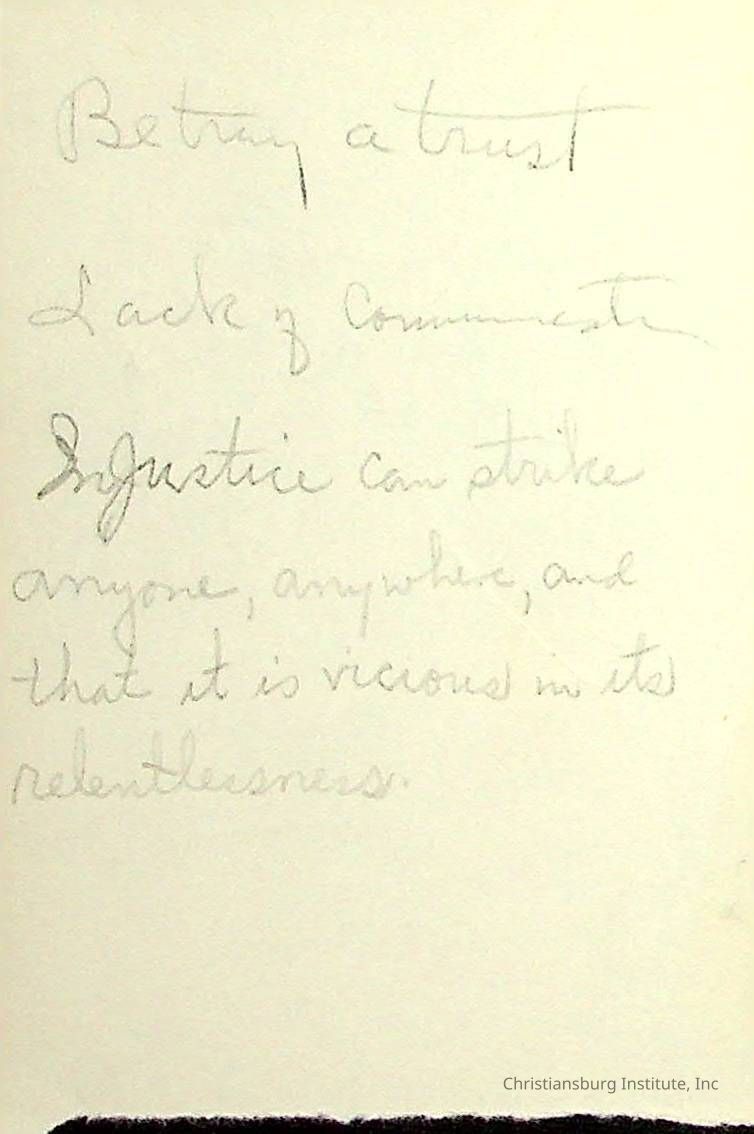 Betray a trust
Lack of Communicati
InJustice can strike
anyone, anywhere, and
that it is vicious in its
relentlessness.
Christiansburg Institute, Inc